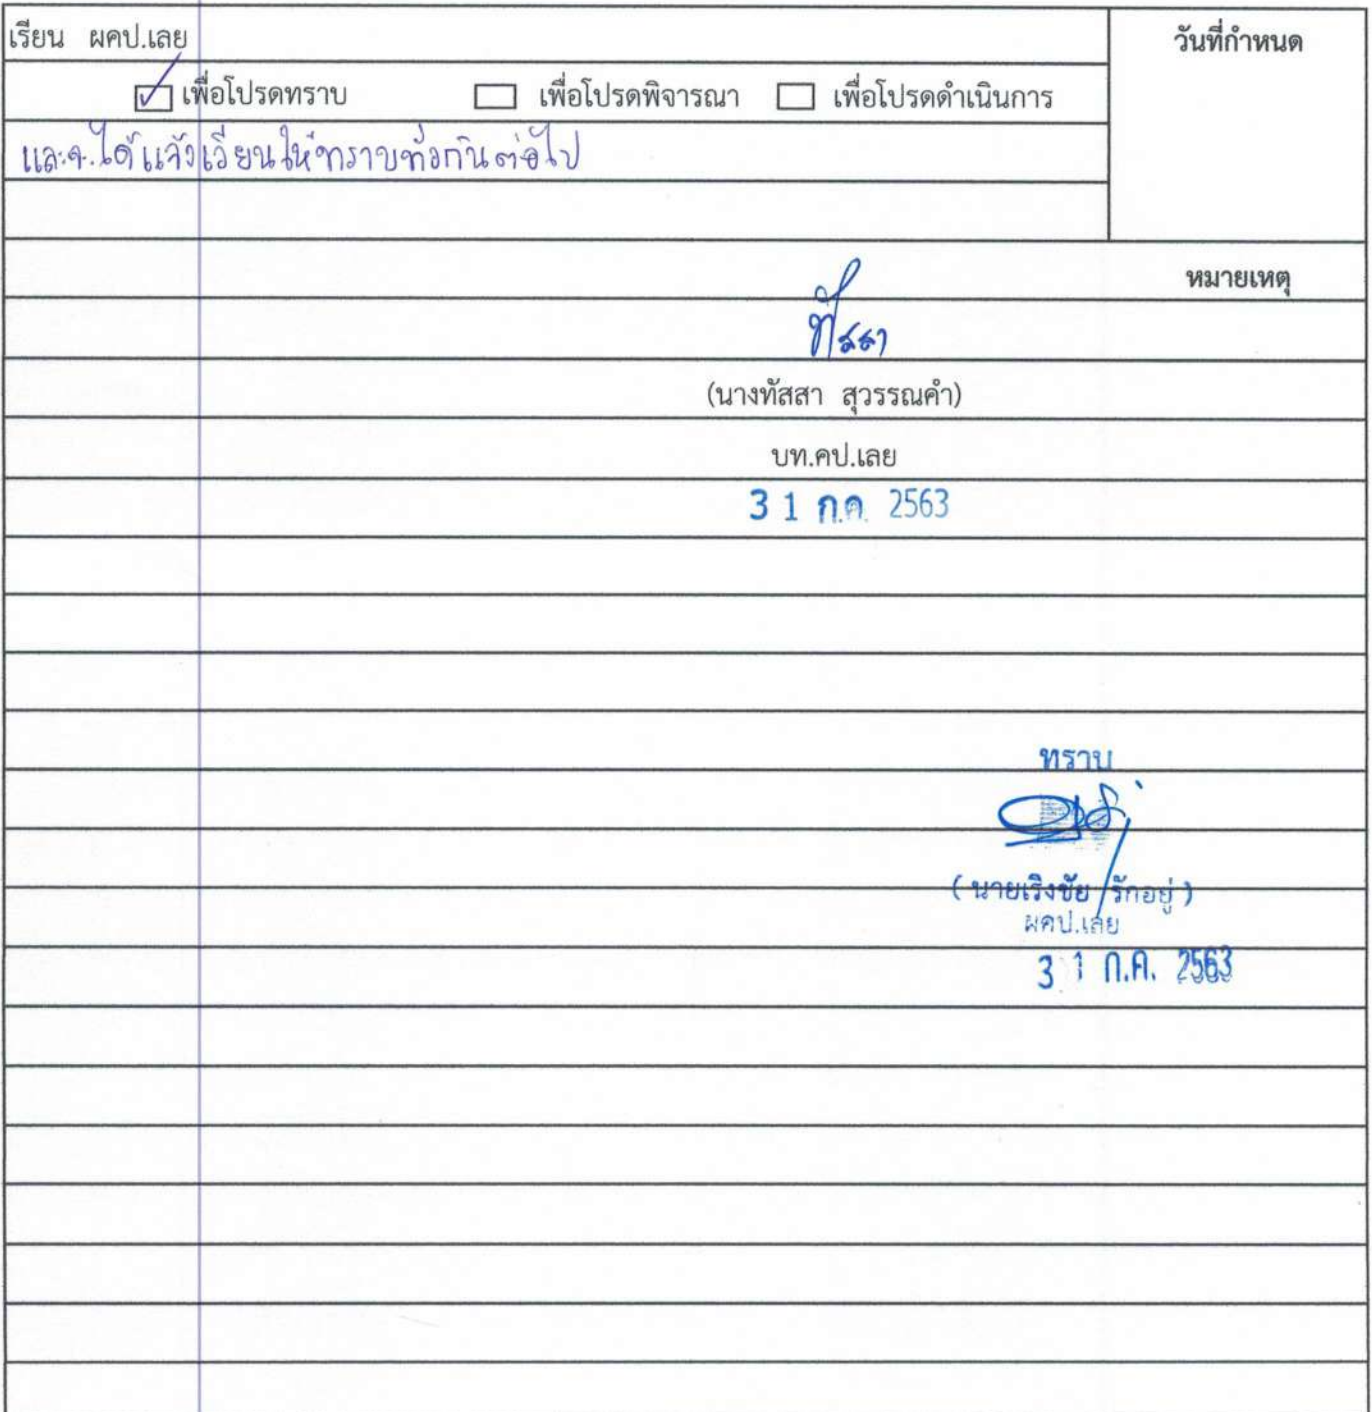 เรียน ผคป.เลย
วันที่กำหนด
เพื่อโปรดทราบ เพื่อโปรดพิจารณา เพื่อโปรดดำเนินการ
และจะได้แจ้งเวียนให้ทราบทั่วกันต่อไป
หมายเหตุ
ทัสสา
(นางทัสสา สุวรรณคำ)
บท.คป.เลย
31 ก.ค. 2563
ทราบ
( นายเริงชัย รักอยู่ )
ผคป.เลย
31 ก.ค. 2563